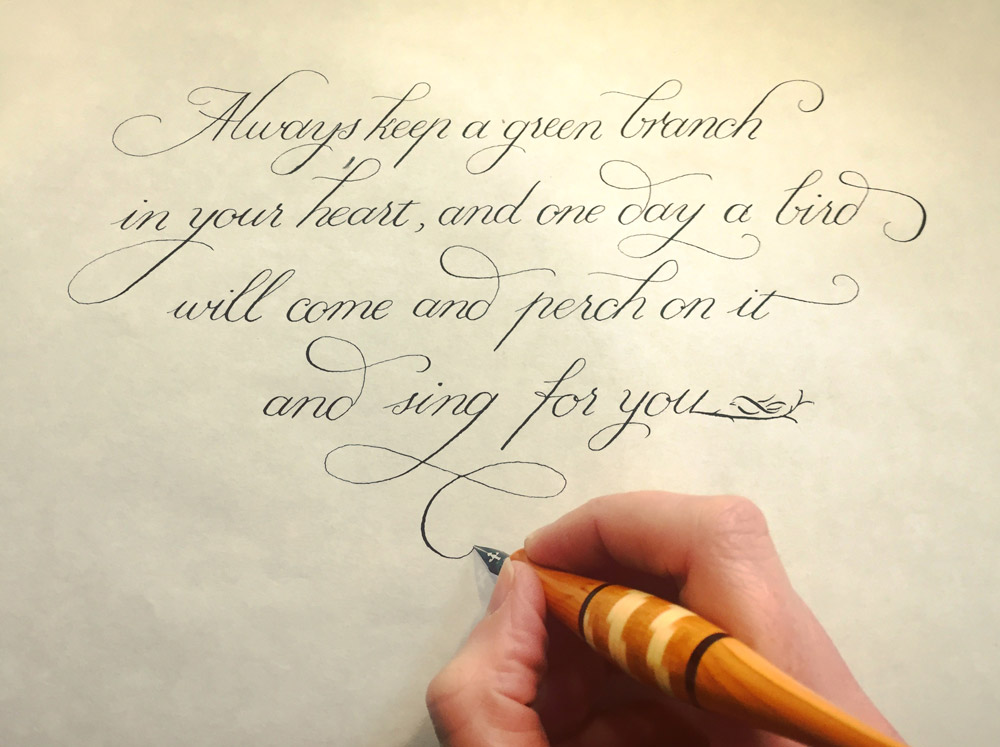 Always keep a green branch
in your heart, and one day a bird
will come and perch on it
and sing for you